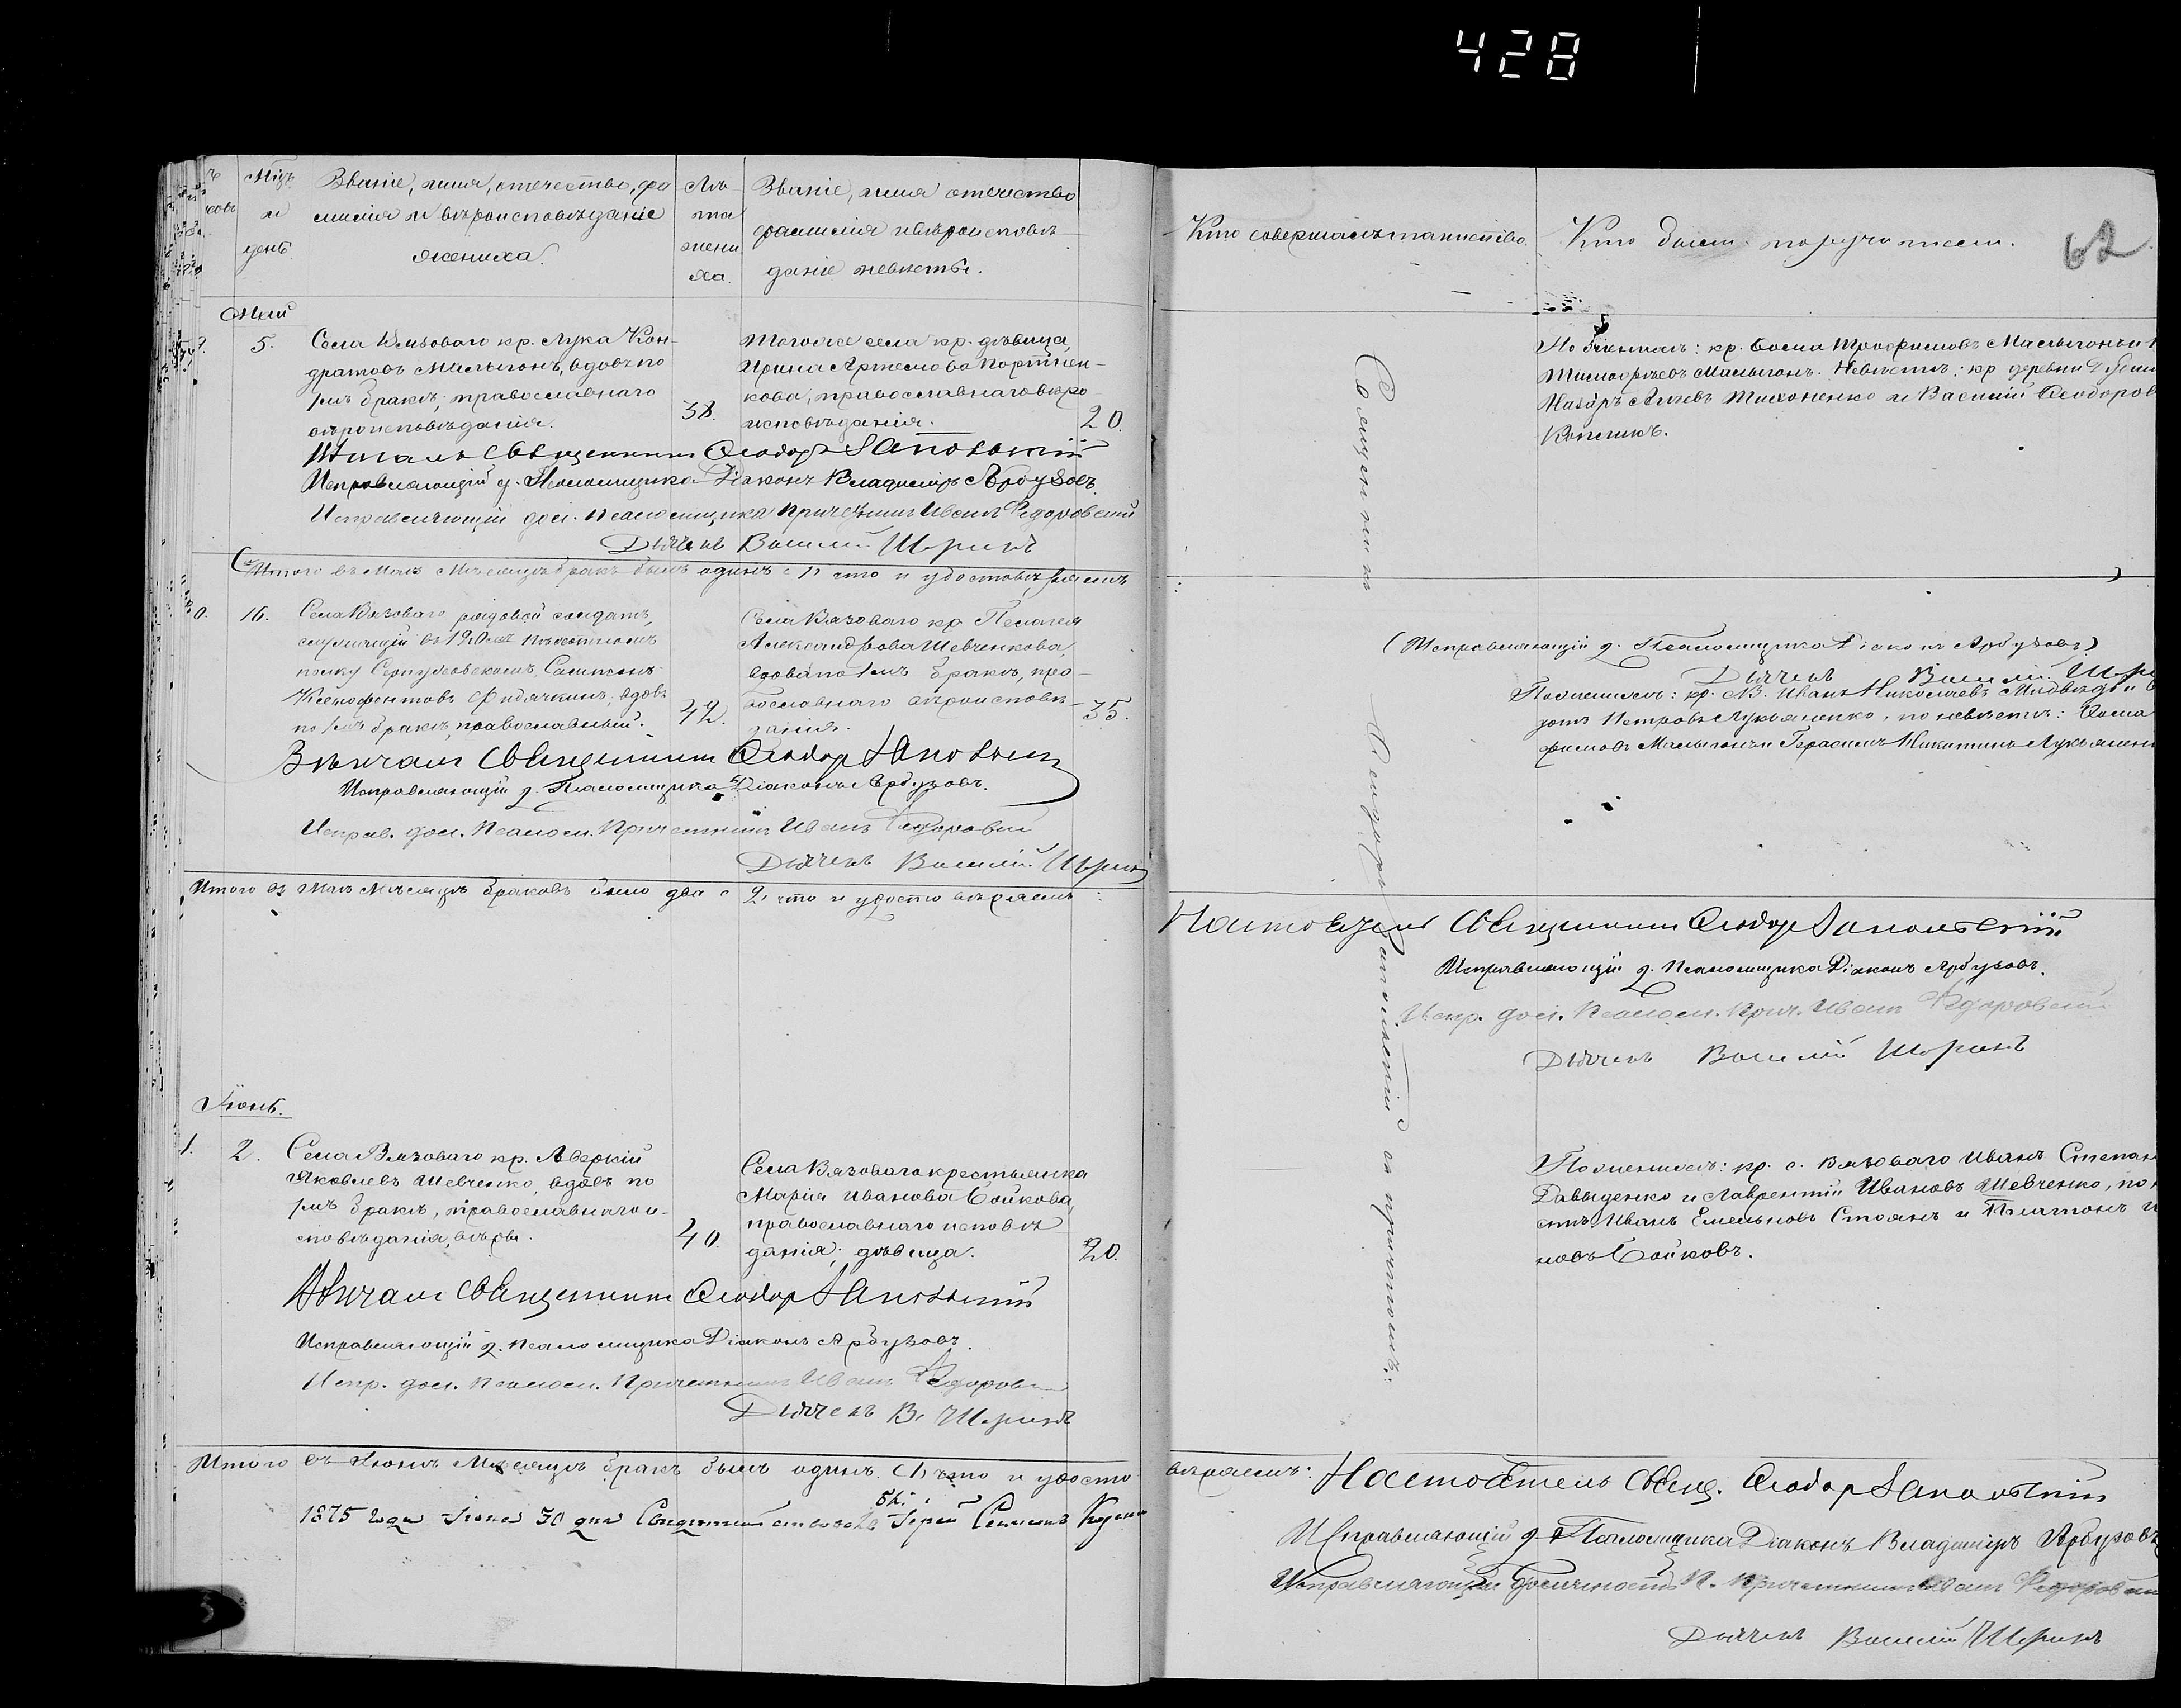 428
62
Мцъ и день
Званіе, имя, отечество, фа
милія и вѣроисповѣданіе
жениха.
Лѣ-
та
жени
ха.
Званіе, имя отечество
фамилія и вѣроисповѣ
даніе невѣсты.
Кто совершалъ таинство.
Кто были поручители.
Май
5.
Села Вязоваго кр. Лука Кон-
дратовъ Малыгонъ, вдовъ по
1мъ бракѣ, православнаго
вѣроисповѣданія.
38.
Тогоже села кр. дѣвица,
Ирина Артемова Портнен-
кова, православнаго вѣро
исповѣданія.
20.
По женихѣ: кр. Косма Трофимовъ Малыгонъ и
Тимофѣевъ Малыгонъ. Невѣстѣ: кр деревни
Назаръ Тихоненко и Василій Ѳеодоров
Вѣнчалъ Священникъ Ѳеодоръ
Исправляющій д. Псаломщика Діаконъ Владиміръ Арбузовъ.
Исправляющій дол. Псаломщика Причетникъ Иванъ Ѳедоровскій
Дьячекъ Василій
Итого въ Маѣ Мѣсяцѣ бракъ былъ одинъ 1, что и удостовѣряемъ
16.
Села Вязоваго рядовой солдатъ,
служащій въ 120мъ пѣхотномъ
полку Серпуховскомъ,
Ксенофонтовъ вдовъ
по 1мъ бракѣ, православный.
42.
Села Вязоваго кр Пелагея
Александрова Шевченкова
вдова по 1мъ бракѣ, пра-
вославнаго вѣроисповѣ-
данія.
35.
(Исправляющій д. Псаломщика Діаконъ Арбузовъ)
Дьячекъ Василій
По женихѣ: кр. С. В. Иванъ Николаевъ и
Петровъ Лукьяненко, по невѣстѣ: Косма
фимовъ Малыгонъ и Герасимъ Никитинъ Лукьяненк
Вѣнчалъ Священникъ Ѳеодоръ
Исправляющій д. Псаломщика Діаконъ Арбузовъ.
Исправ. дол. Псалом. Причетникъ Иванъ Ѳедоровскій
Дьячекъ Василій
Итого въ Маѣ Мѣсяцѣ браковъ было два 2, что и удостовѣряемъ:
Настоятель Священникъ Ѳеодоръ
Исправляющій д. Псаломщика Діаконъ Арбузовъ.
Испр. дол. Псалом. Прич. Иванъ Ѳедоровскій
Дьячекъ Василій
Священникъ Ѳеодоръ съ причтомъ:
Іюнь.
1.
2.
Села Вязоваго кр. Аверкій
Яковлевъ Шевченко, вдовъ по
1мъ бракѣ, православнаго и-
сповѣданія, вѣры.
40.
Села Вязоваго крестьянка
Марія Иванова Бойкова,
православнаго исповѣ
данія, дѣвица.
20.
По женихѣ: кр. с. Вязоваго Иванъ Степан
Давыденко и Лаврентій Ивановъ Шевченко, по
стѣ Иванъ Емельновъ Стоянъ и Платонъ
новъ Бойковъ.
Вѣнчалъ Священникъ Ѳеодоръ
Исправляющій д. Псаломщика Діаконъ Арбузовъ.
Испр. дол. Псалом. Причетникъ Иванъ Ѳедоровскій
Дьячекъ В.
Итого въ Іюнѣ Мѣсяцѣ бракъ былъ одинъ 1, что и удосто
вѣряемъ: Настоятель Свящ. Ѳеодоръ
1875 года Іюня 30 дня Іерей
Исправляющій д. Псаломщика Діаконъ Владиміръ Арбузовъ
Исправляющій должность П. Причетникъ Иванъ Ѳедоровскій
Дьячекъ Василій